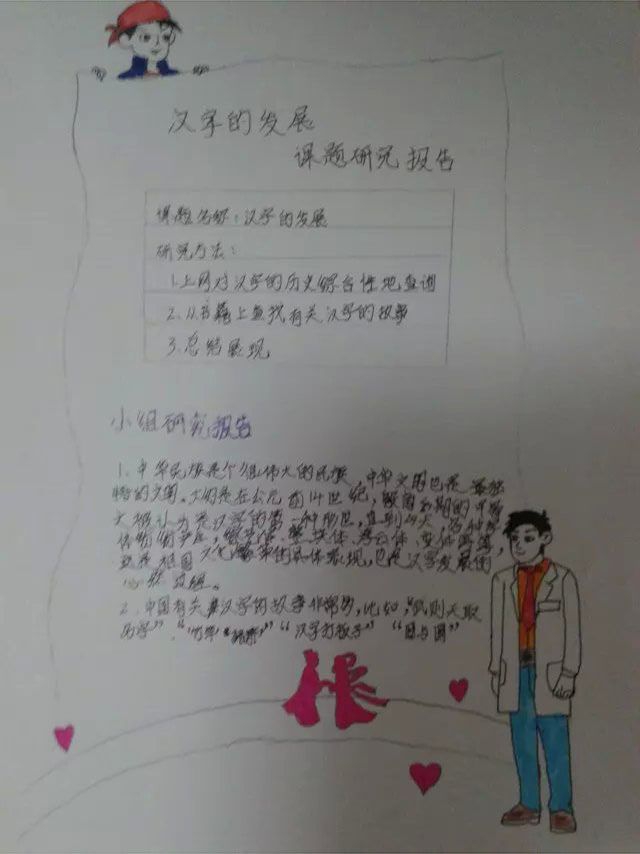 汉字的发展
课题研究报告
课题名称：汉字的发展
研究方法：
1.上网对汉字的历史综合性地查询
2.从书籍上查找有关汉字的故事
3.总结展现
小组研究报告
1、中华民族是个很伟大的民族，中华文字也是最独
特的文字。大约是在公元前14世纪，殷商后期的甲骨
文被认为是汉字的第一种形世，直到今天，各种字
体纷纷产生，
也是祖国文化的具体表现，也是汉字发展的
必然
2、中国有关汉字的故事非常多，比如，“武则天取
名字”，“汉字打板子”“